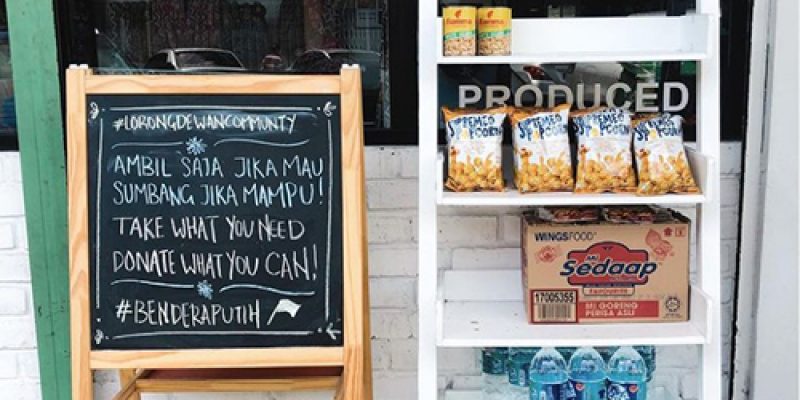 #LORONGDEWANCOMMUNTY
AMBIL SAJA JIKA MAU
SUMBANG JIKA MAMPU!
TAKE WHAT YOU NEED
DONATE WHAT YOU CAN!
#BENDERAPUTIH
PRODUCED
SUPREMEO POPCORN
SUPREMEO POPCORN
SUPREMEO POPCORN
SUPREMEO POPCORN
WINGSFOOD
MI
Sedaap
FAVOURITE
17005355
MI GORENG
PERISA ASLI